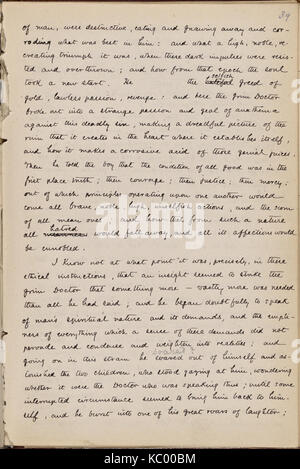 39
of man, were destructive, eating and gnawing away and cor-
roding what was best in him: and what a high, noble, re-
creating triumph it was, when these dark impulses were resis-
ted and overthrown; and how from that epoch the soul
took a new start. He the selfish greed of
gold, lawless passion, revenge! and here the grim Doctor
broke out into a strange passion and zeal of anathema
against this deadly sin, making a dreadful picture of the
ruin that it creates in the heart where it establishes itself,
and how it makes a corrosive acid of those genial juices.
Then he told the boy that the condition of all good was in the
first place truth; then courage; then justice; then mercy:
out of which principles operating upon one another would
come all brave, noble, high, unselfish actions, and the scorn
of all mean ones: and how that from such a nature
all hatred would fall away, and all its affections would
be ennobled.
I know not at what point it was, precisely, in these
ethical instructions, that an insight seemed to strike the
grim Doctor that something more — vastly more was needed
than all he had said; and he began doubtfully to speak
of man's spiritual nature and its demands, and the empti-
ness of everything which a sense of these demands did not
pervade and condense and weighten into realities: and
going on in this strain he soared out of himself and as-
tonished the two children, who stood gazing at him, wondering
whether it were the Doctor who was speaking thus; until some
interrupted circumstance seemed to bring him back to him-
self, and he burst into one of his great roars of laughter;
alamy
KC00BM